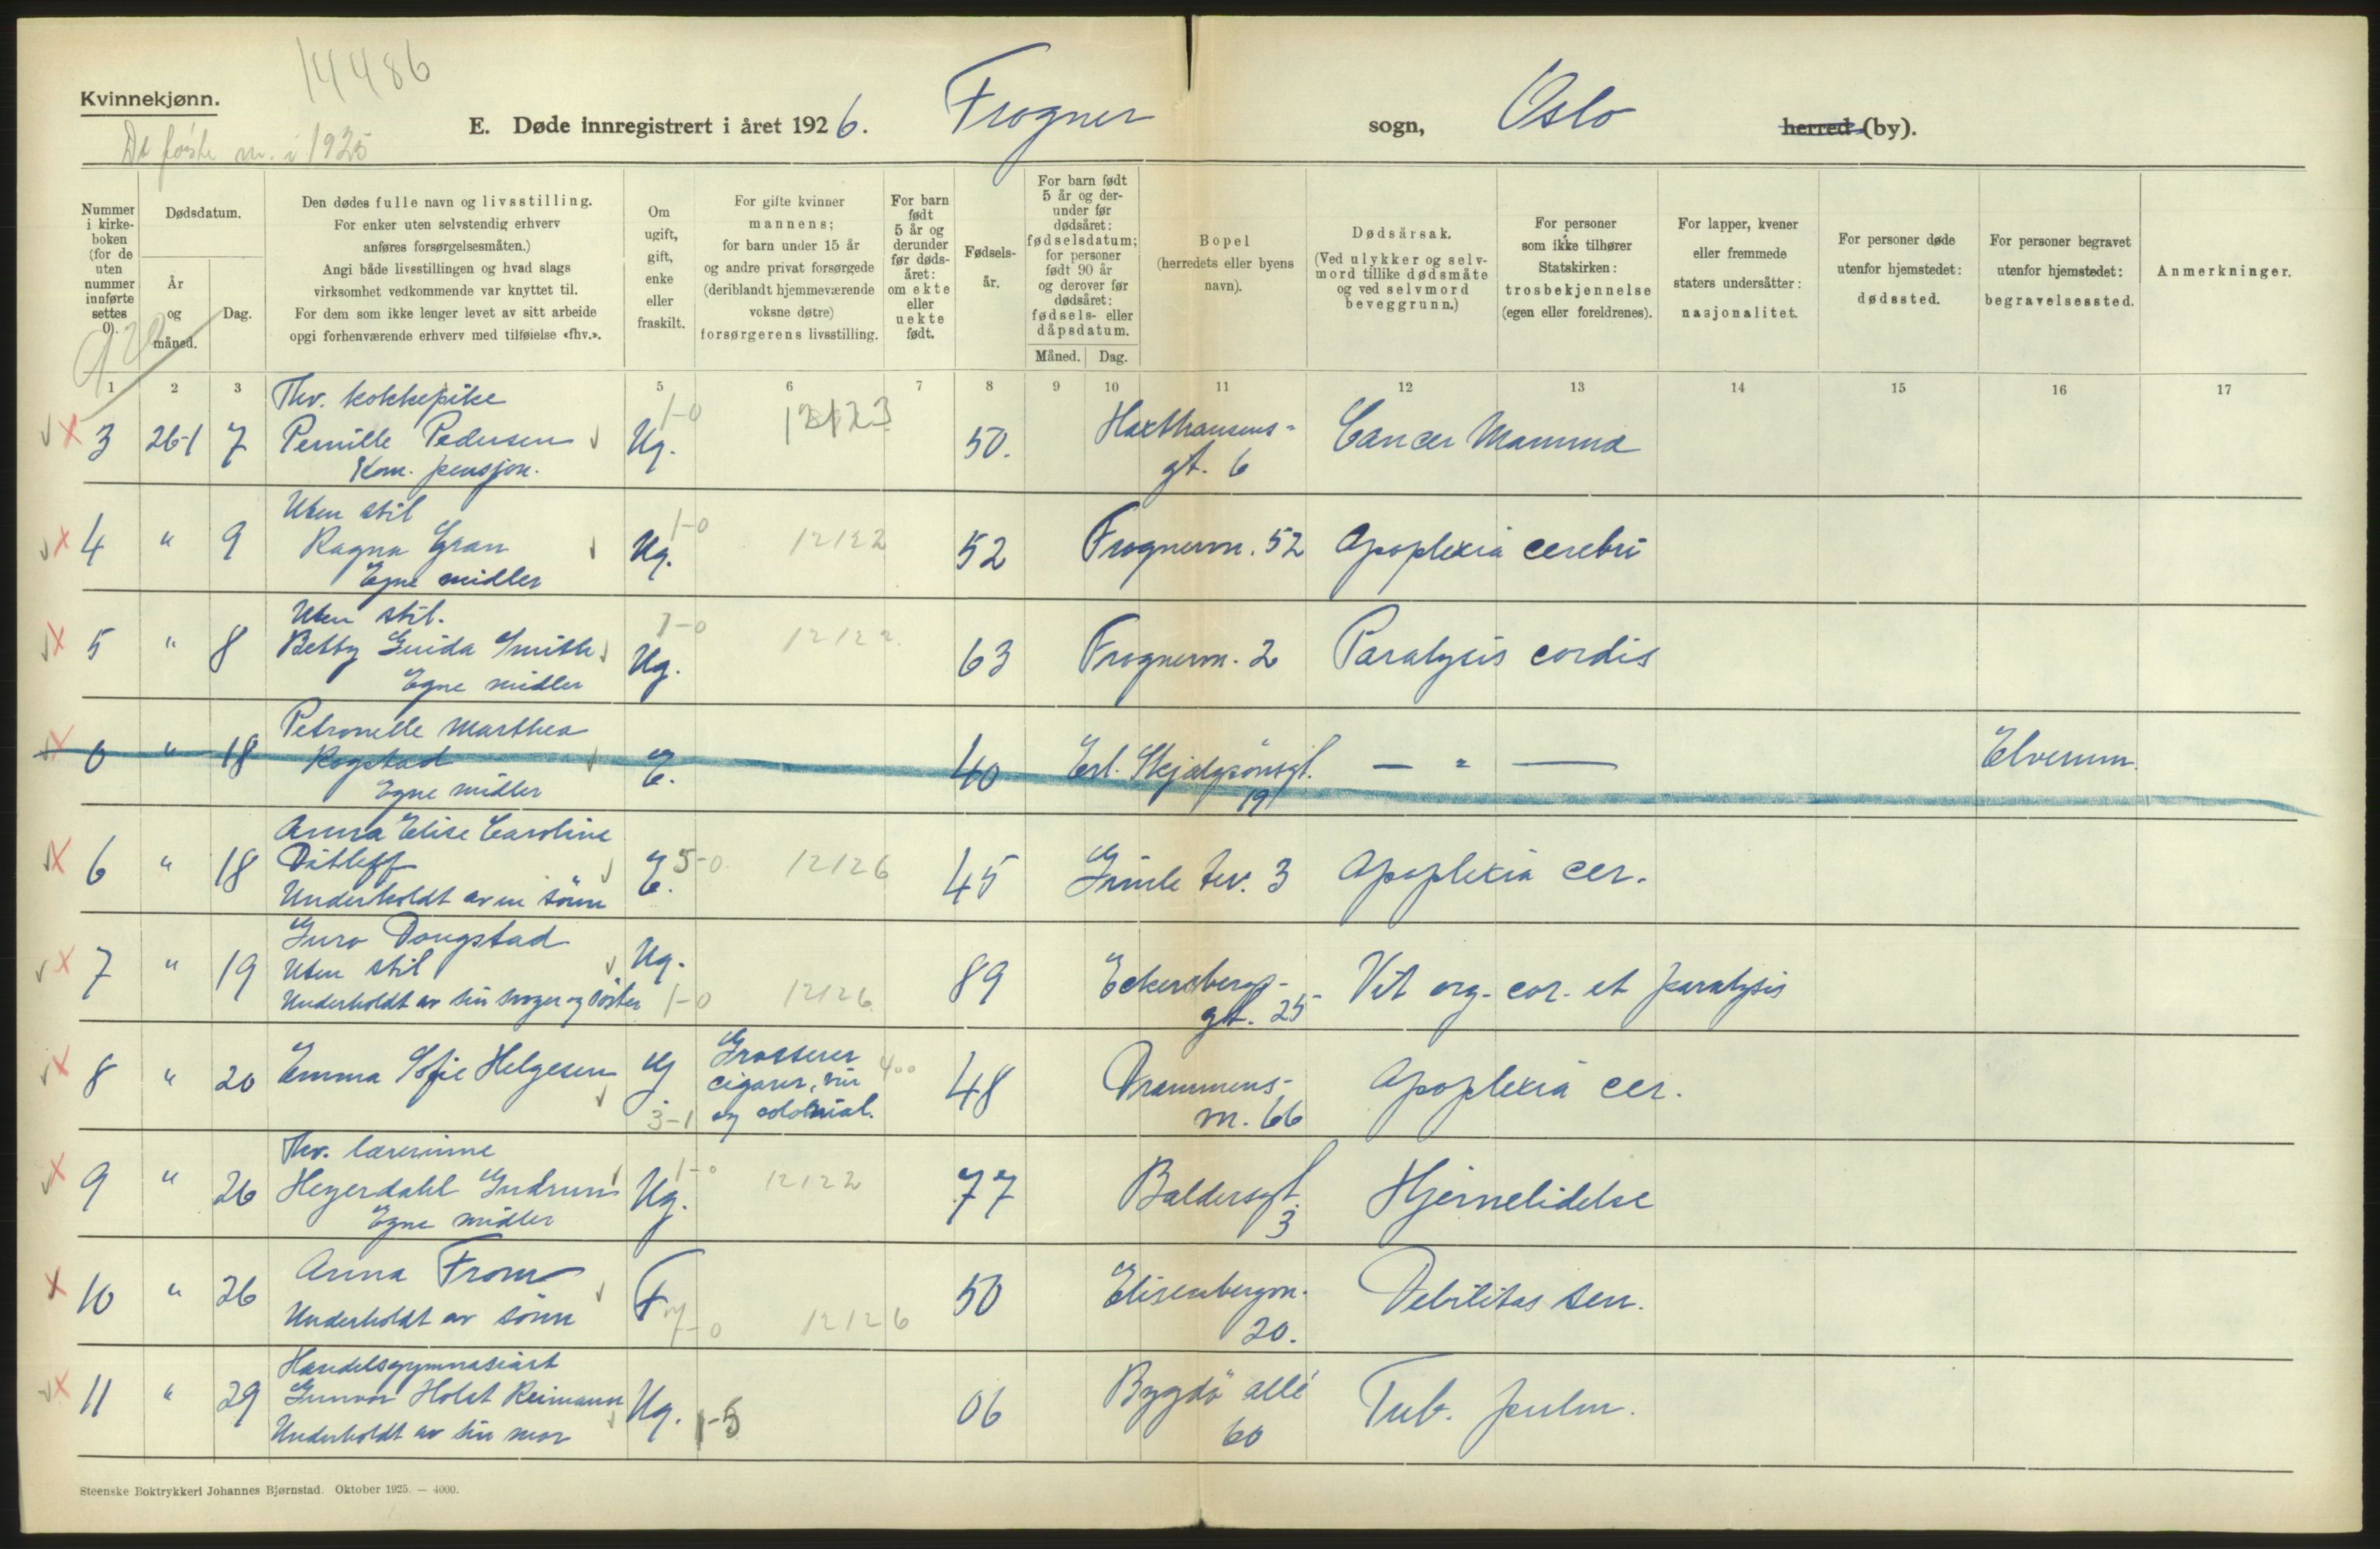 14486
Kvinnekjønn.
De første m. i 1925
E. Døde innregistrert i året 1926. Frogner sogn, Oslo herred (by).
Nummer i kirkeboken (for de uten nummer innførte settes 0).
Dødsdatum.
År og måned.
Dag.
Den dødes fulle navn og livsstilling.
For enker uten selvstendig erhverv
anføres forsørgelsesmåten.)
Angi både livsstillingen og hvad slags
virksomhet vedkommende var knyttet til.
For dem som ikke lenger levet av sitt arbeide
opgi forhenværende erhverv med tilføielse «fhv.».
Om ugift, gift, enke eller fraskilt.
For gifte kvinner
mannens;
for barn under 15 år
og andre privat forsørgede
(deriblandt hjemmeværende
voksne døtre)
forsørgerens livsstilling.
For barn født 5 år og derunder før dødsåret: om ekte eller uekte født.
Fødselsår.
For barn født 5 år og derunder før dødsåret: fødselsdatum; for personer født 90 år og derover før dødsåret: fødsels- eller dåpsdatum.
Måned. Dag.
Bopel
(herredets eller byens
navn).
Dødsårsak.
(Ved ulykker og selvmord tillike dødsmåte og ved selvmord beveggrunn.)
For personer
som ikke tilhører
Statskirken:
trosbekjennelse
(egen eller foreldrenes).
For lapper, kvener
eller fremmede
staters undersåtter:
nasjonalitet.
For personer døde
utenfor hjemstedet:
dødssted.
For personer begravet
utenfor hjemstedet:
begravelsessted.
Anmerkninger.
1 2 3 5 6 7 8 9 10 11 12 13 14 15 16 17
Fhv. kokkepike
3 26-1 7 Pernille Pedersen Ug. 1-0 50. Haxthausens-
Kom. pensjon. gt. 6 Cancer Mamma
Uten stil
4 " 9 Ragna Gran Ug. 1-0 12122 52 Frognerv. 52 Apoplexia cerebri
Egne midler
Uten stil.
5 " 8 Betty Guida Smith Ug. 1-0 12122 63 Frognerv. 2 Paralysis cordis
Egne midler
Petronelle Marthea
0 " 18 Rogstad E. 40 Erl. Skjalgsønsgt. 19 — " — Elverum.
Egne midler
Anna Elise Caroline
6 " 18 Ditleff E. 5-0 12126 45 Gimle ter. 3 Apoplexia cer.
Underholdt av en sönn
Guro Dongstad Ug.
7 " 19 Uten stil 89 Eckersbergs-
Underholdt av sin svoger og söster 1-0 12126 gt. 25 Vit. org. cor. et paralysis
8 " 20 Emma Sofie Helgesen G. 3-1 Grosserer
cigarer, vin 400
og colonial. 48 Drammens-
v. 66 Apoplexia cer.
Fhv. lærerinne
9 " 26 Heyerdahl Gudrun Ug. 1-0 12122 77 Baldersgt. 3 Hjernelidelse
Egne midler
10 " 26 Anna From F 7-0 12126 50 Elisenbergv.
Underholdt av sönn 20. Debilitas sen.
Handelsgymnasiast
11 " 29 Gunvor Holst Reimann Ug. 1-5 06 Bygdö allé
Underholdt av sin mor 60 Tub. pulm.
Steenske Boktrykkeri Johannes Bjørnstad. Oktober 1925. — 4000.